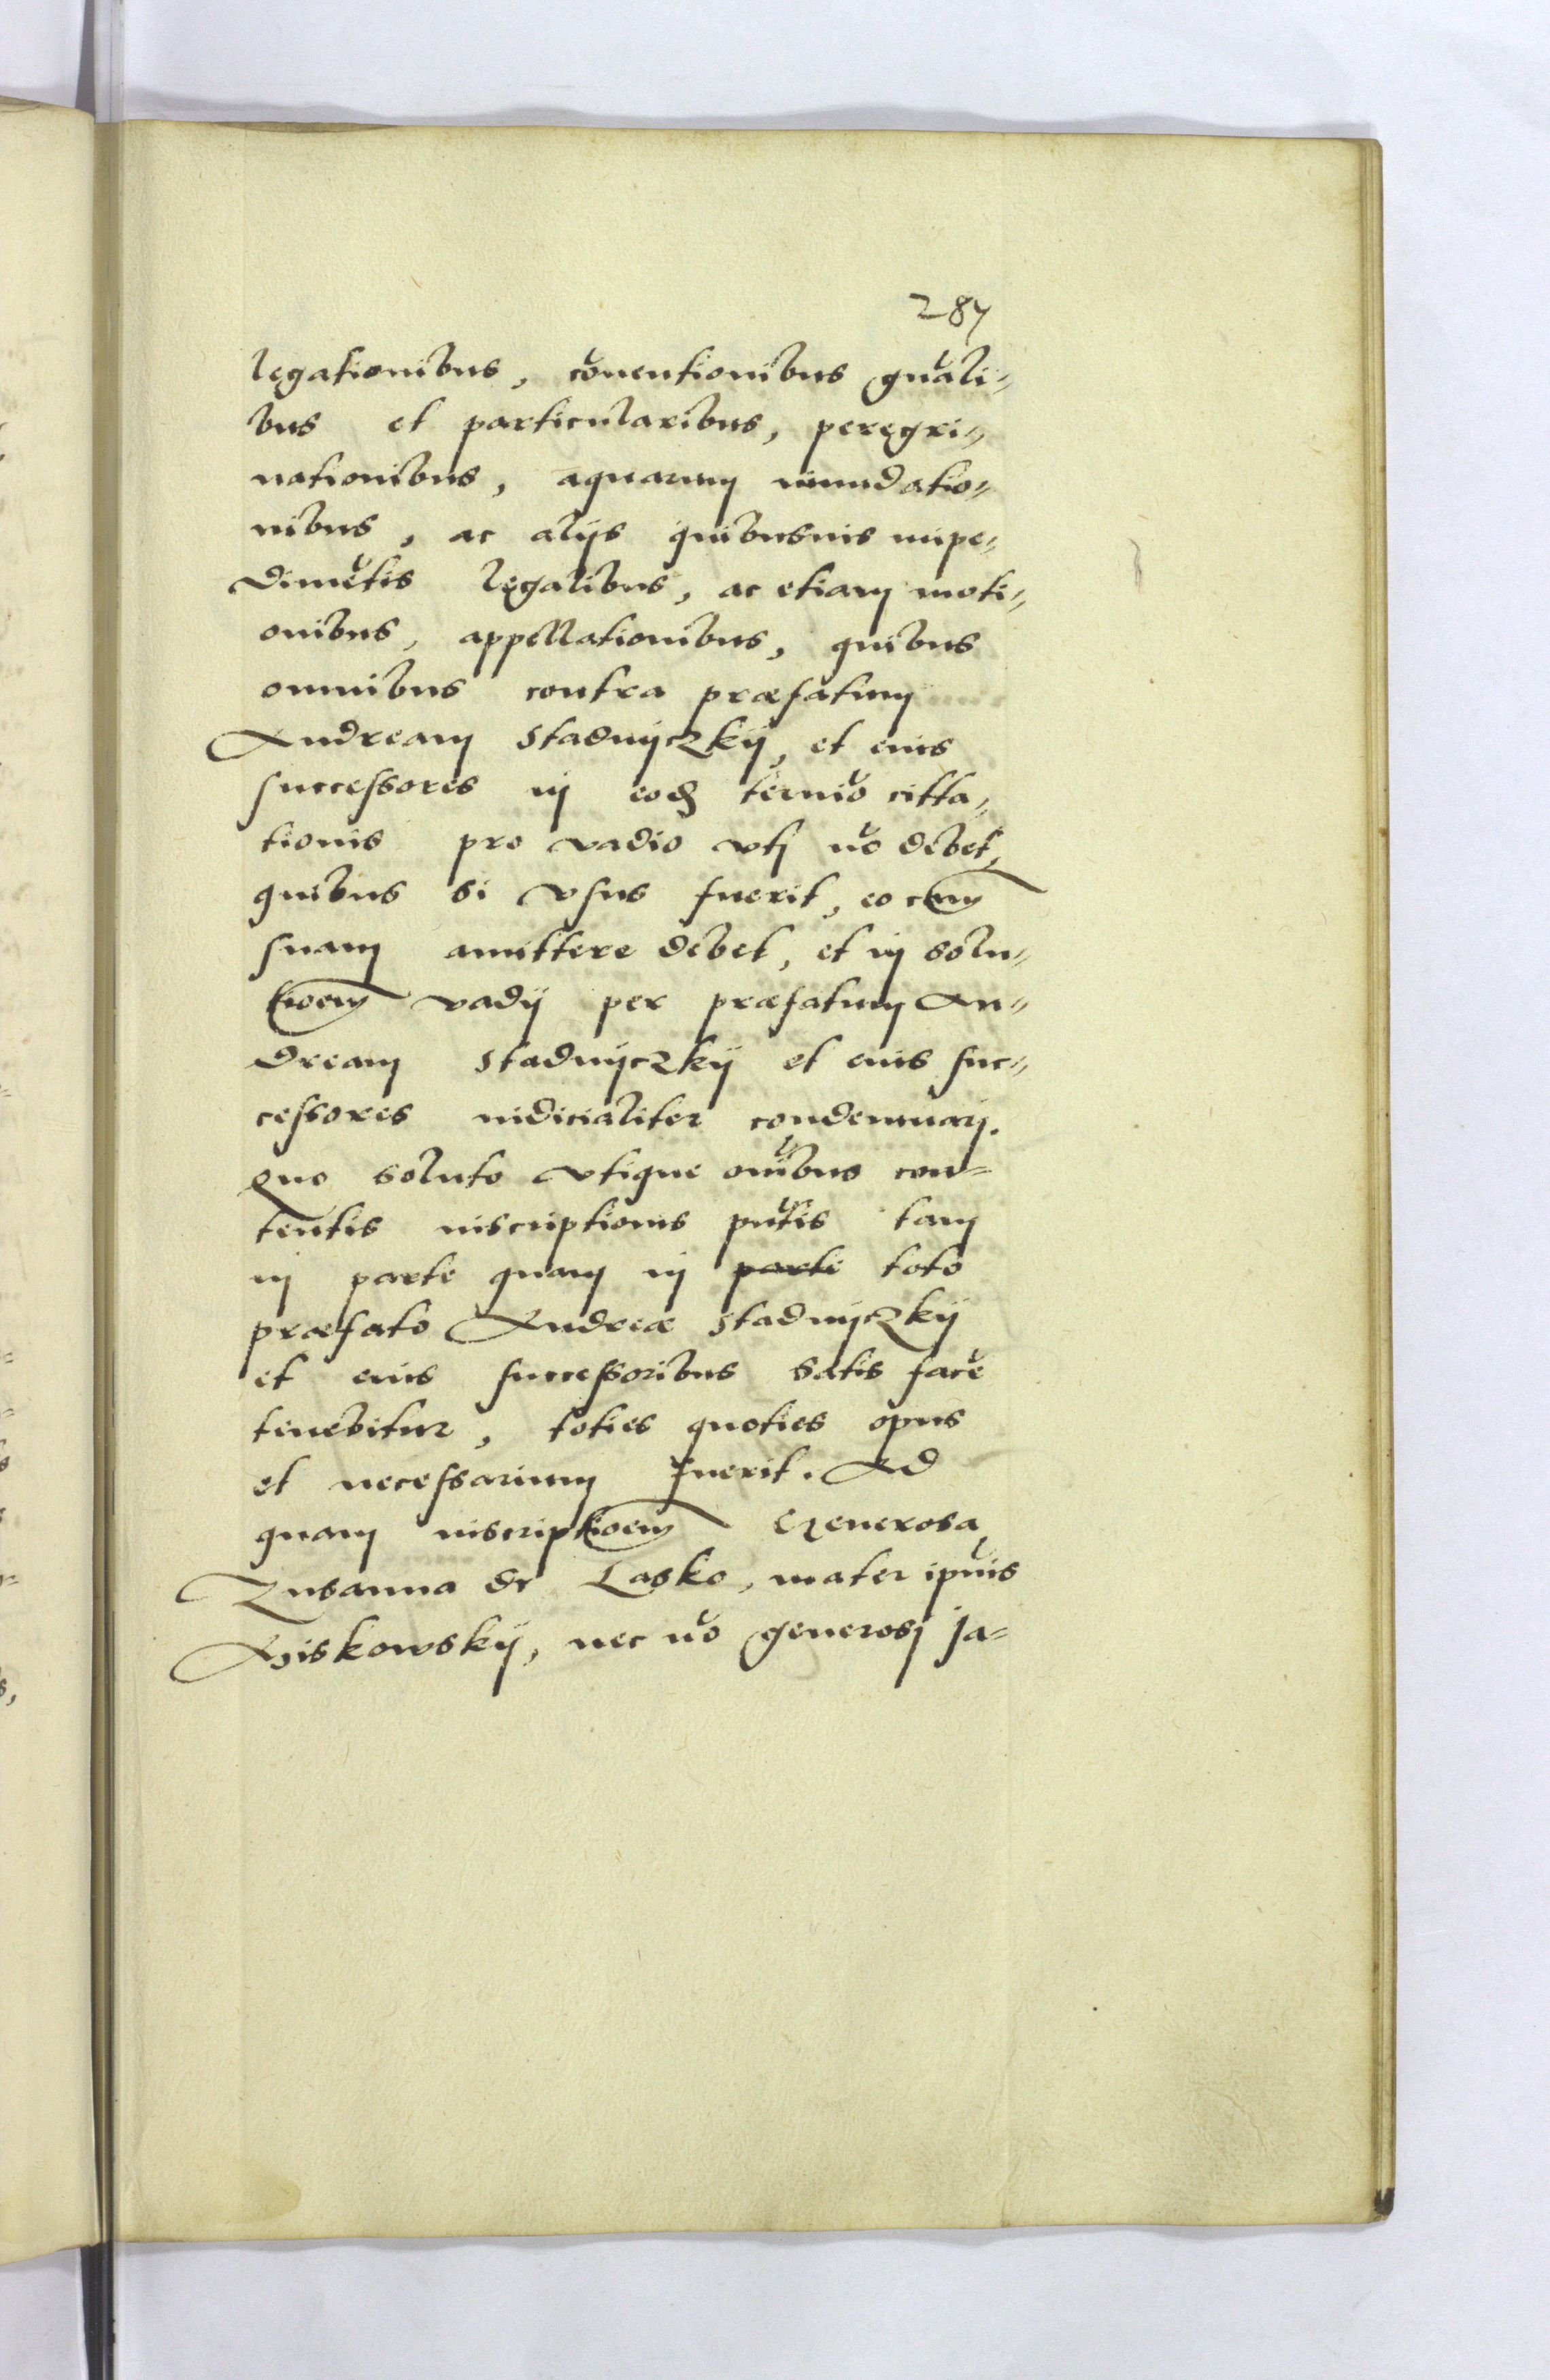 287
legationibus, cōuentionibus gnāli=
bus et particularibus, peregri=
nationibus, aquarum inundatio=
nibus, ac alijs quibusuis impe=
dimētis legalibus, ac etiam moti=
onibus, appellationibus, quibus
omnibus contra præfatum
Andream Stadnyczkÿ, et eius
successores in eod termīo citta=
tionis pro vadio vti nō debet,
quibus si vsus fuerit, eo cām
suam amittere debet, et in solu=
tioem vadij per præfatum An=
dream Stadnyczkÿ et eius suc=
cessores iudicialiter condemnari.
quo soluto vtique oībus con=
tentis inscriptionis pntis tam
in parte quam in parte toto
præfato Andreæ Stadnyczkÿ
et eius successoribus satis facē
tenebitur, toties quoties opus
et necessarium fuerit. Ad
quam inscriptioem Generosa
Zusanna de Lasko, mater ipīus
Xiskowskÿ, nec nō generosi Ja=